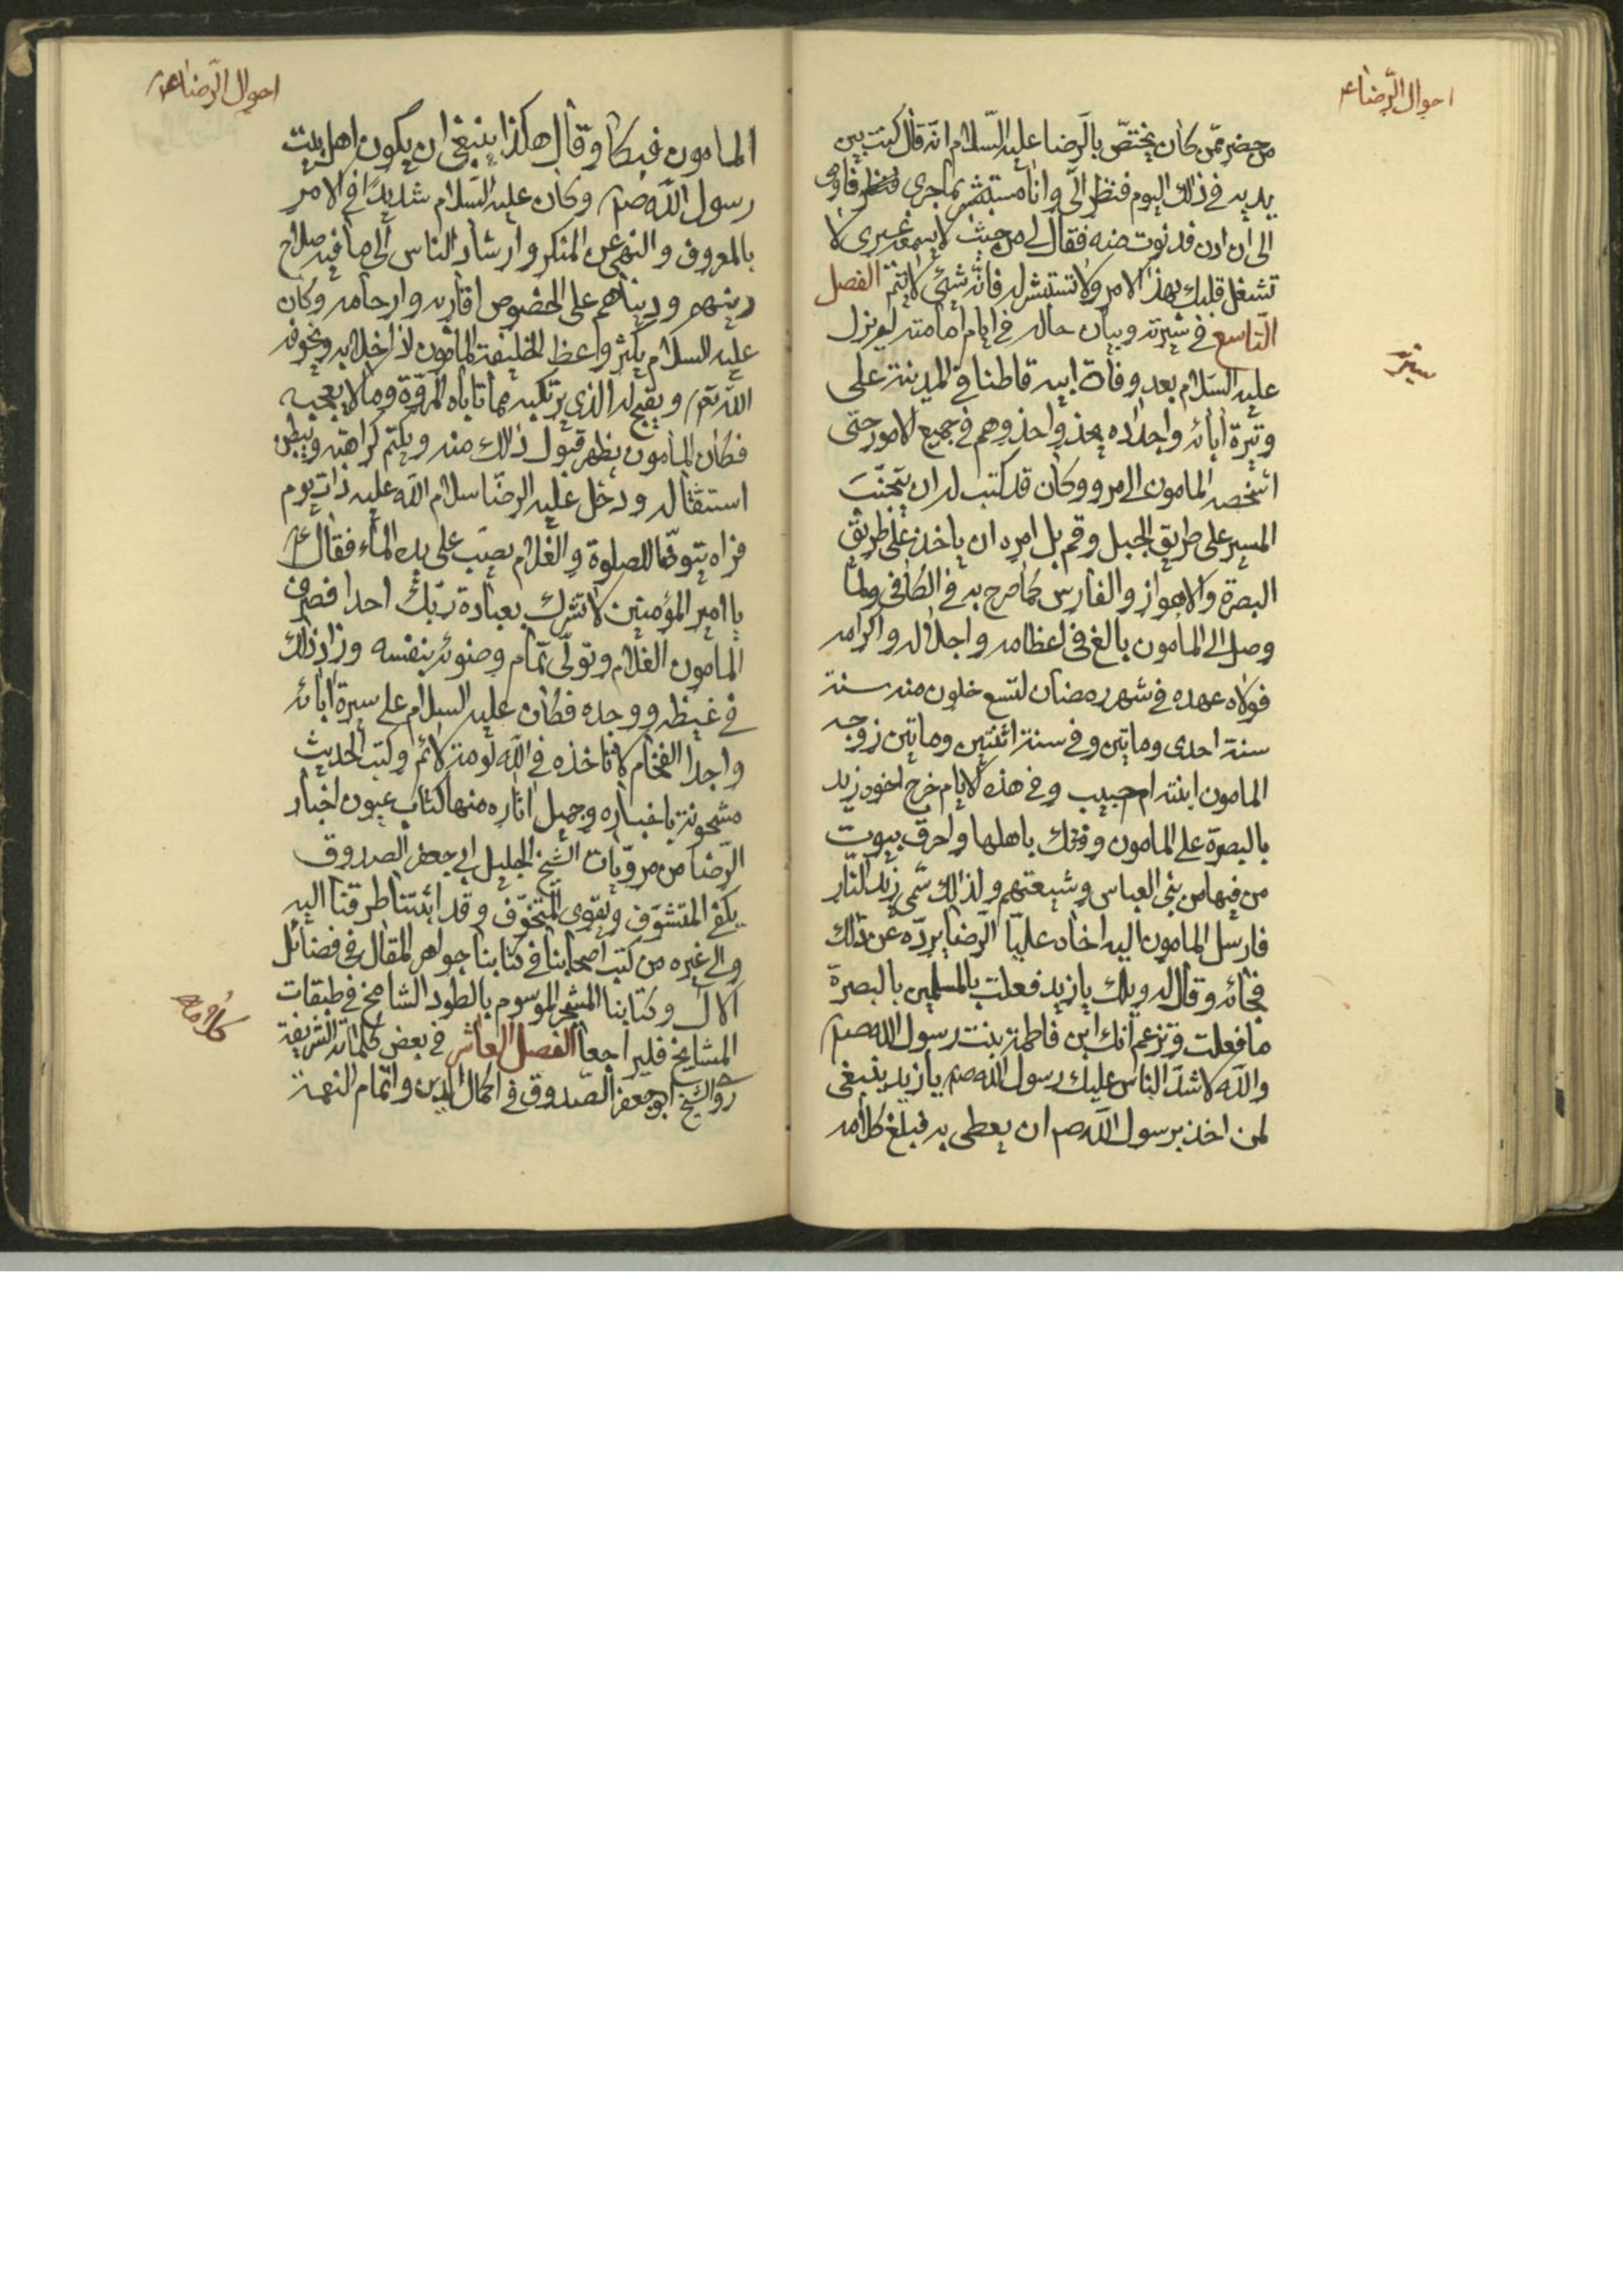 احوال الرضا ع
من حضر ممّن كان يختصّ بالرضا عليه السّلام انه قال كنت بين
يديه في ذلك اليوم فنظر الىّ وانا مستبشر بما جرى فاومى
الى ان ادن فدنوت منه فقال لى من حيث لا يسمعه غيرى لا
تشغل قلبك بهذا الامر ولا تستبشر له فانه شئ لا يتم الفصل
التاسع في سيرته وبيان حاله في ايام امامته لم يزل
سيرته
عليه السلام بعد وفاة ابيه قاطنا في المدينة على
وتيرة ابائه واجداده يحذو احذوهم في جميع الامور حتى
اشخصه المامون الى مرو وكان قد كتب له ان يتجنّب
المسير على طريق الجبل وقم بل امره ان ياخذ على طريق
البصرة والاهواز والفارس كما صرح به في الكافى ولما
وصل الى المامون بالغ في اعظامه واجلاله واكرامه
فولاه عهده في شهر رمضان لتسع خلون منه سنة
سنة احدى وماتين وفي سنة اثنتين وماتين زوجه
المامون ابنته ام حبيب وفي هذه الايام خرج اخوه زيد
بالبصرة على المامون وفتك باهلها واحرق بيوت
من فيها من بنى العباس وشيعتهم ولذلك سمى زيد النّار
فارسل المامون اليه اخاه عليّا الرضا يردّه عن ذلك
فجائه وقال له ويلك يا زيد فعلت بالمسلمين بالبصرة
ما فعلت وتزعم انك ابن فاطمة بنت رسول الله صم
والله لاشد الناس عليك رسول الله صم يا زيد ينبغى
لمن اخذ برسول الله صم ان يعطى به فبلغ كلامه
احوال الرضا ع
المامون فبكا وقال هكذا ينبغى ان يكون اهل بيت
رسول الله صم وكان عليه السلام شديدًا في الامر
بالمعروف والنهى عن المنكر وارشاد الناس الى ما فيه صلاح
دينهم ودنياهم على الخصوص اقاربه وارحامه وكان
عليه السلام يكثر واعظ الخليفة المامون اذا خلا به ويخوفه
الله تعم ويقبح له الذى يرتكبه مما تاباه المروّة وما لا يعجبه
فكان المامون يظهر قبول ذلك منه ويكتم كراهته ويبطن
استثقاله ودخل عليه الرضا سلام الله عليه ذات يوم
فراه يتوضّا للصلوة والغلام يصب على يده الماء فقال ع
يا امير المؤمنين لا تشرك بعبادة ربّك احدا فصرف
المامون الغلام وتولّى تمام وضوئه بنفسه وزاد ذلك
في غيظه ووجده فكان عليه السلام على سيرة ابائه
واجدا الفخام لا تاخذه في الله لومة لائم وكتب الحديث
مشحونة باخباره وجميل اثاره منها كتاب عيون اخبار
الرضا من مرويات الشيخ الجليل ابى جعفر الصدوق
يكفى المتشوّف وتقوى المتخوّف وقد اثبتنا طرقنا اليه
والى غيره من كتب اصحابنا في كتابنا جواهر المقال في فضائل
الآل وكتابنا المشجر الموسوم بالطود الشامخ في طبقات
المشايخ فليراجعا الفصل العاشر في بعض كلماته الشريفة
كلامه
رواه الشيخ ابو جعفر الصدوق في اكمال الدين واتمام النعمة